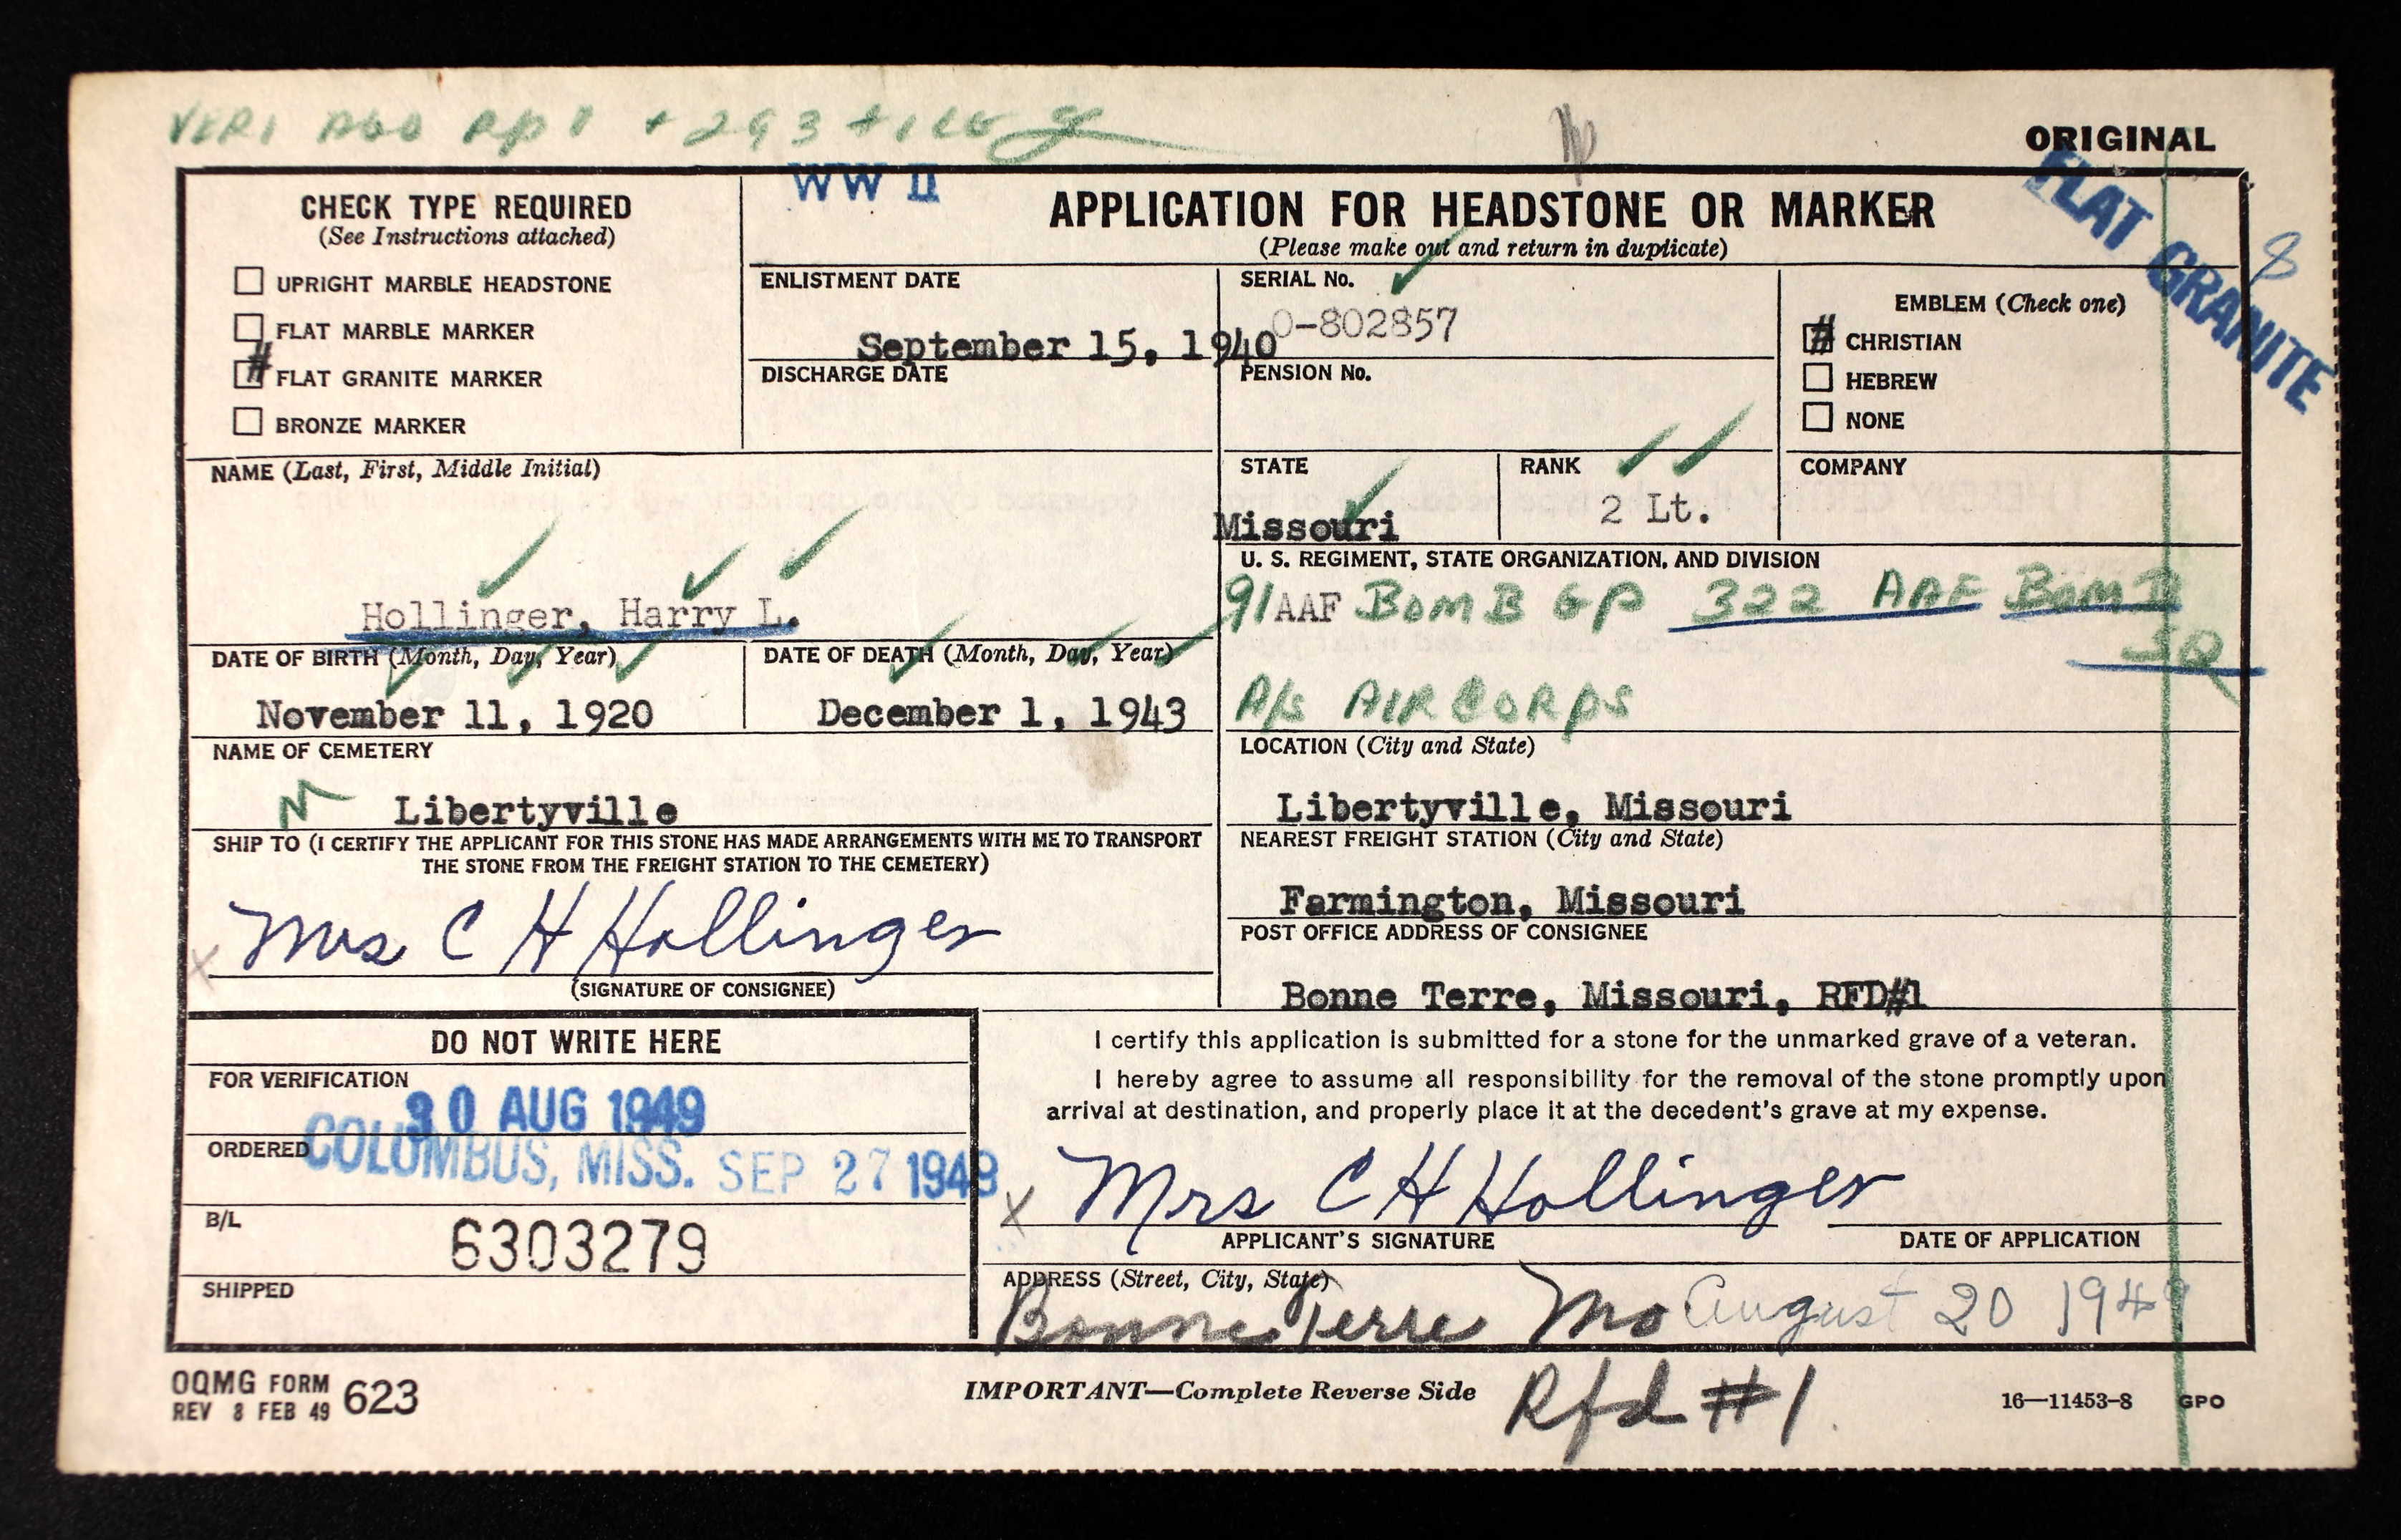 VERI AGO Rpt + 293 +
ORIGINAL
WW II
FLAT GRANITE
8
CHECK TYPE REQUIRED
(See Instructions attached)
UPRIGHT MARBLE HEADSTONE
FLAT MARBLE MARKER
# FLAT GRANITE MARKER
BRONZE MARKER
APPLICATION FOR HEADSTONE OR MARKER
(Please make out and return in duplicate)
ENLISTMENT DATE
September 15, 1940
DISCHARGE DATE
SERIAL No.
O-802857
PENSION No.
EMBLEM (Check one)
# CHRISTIAN
HEBREW
NONE
NAME (Last, First, Middle Initial)
Hollinger, Harry L.
STATE
Missouri
RANK
2 Lt.
COMPANY
U. S. REGIMENT, STATE ORGANIZATION, AND DIVISION
91 AAF BOMB GP 322 AAF BOMB
SQ
A/S AIR CORPS
DATE OF BIRTH (Month, Day, Year)
November 11, 1920
DATE OF DEATH (Month, Day, Year)
December 1, 1943
NAME OF CEMETERY
N Libertyville
LOCATION (City and State)
Libertyville, Missouri
SHIP TO (I CERTIFY THE APPLICANT FOR THIS STONE HAS MADE ARRANGEMENTS WITH ME TO TRANSPORT
THE STONE FROM THE FREIGHT STATION TO THE CEMETERY)
x Mrs C H Hollinger
(SIGNATURE OF CONSIGNEE)
NEAREST FREIGHT STATION (City and State)
Farmington, Missouri
POST OFFICE ADDRESS OF CONSIGNEE
Bonne Terre, Missouri, RFD#1
DO NOT WRITE HERE
FOR VERIFICATION
30 AUG 1949
ORDERED
COLUMBUS, MISS. SEP 27 1949
B/L
6303279
SHIPPED
I certify this application is submitted for a stone for the unmarked grave of a veteran.
I hereby agree to assume all responsibility for the removal of the stone promptly upon
arrival at destination, and properly place it at the decedent's grave at my expense.
x Mrs C H Hollinger
APPLICANT'S SIGNATURE
DATE OF APPLICATION
ADDRESS (Street, City, State)
Bonne Terre Mo August 20 1949
Rfd #1
OQMG FORM 623
REV 8 FEB 49
IMPORTANT—Complete Reverse Side
16—11453-8 GPO